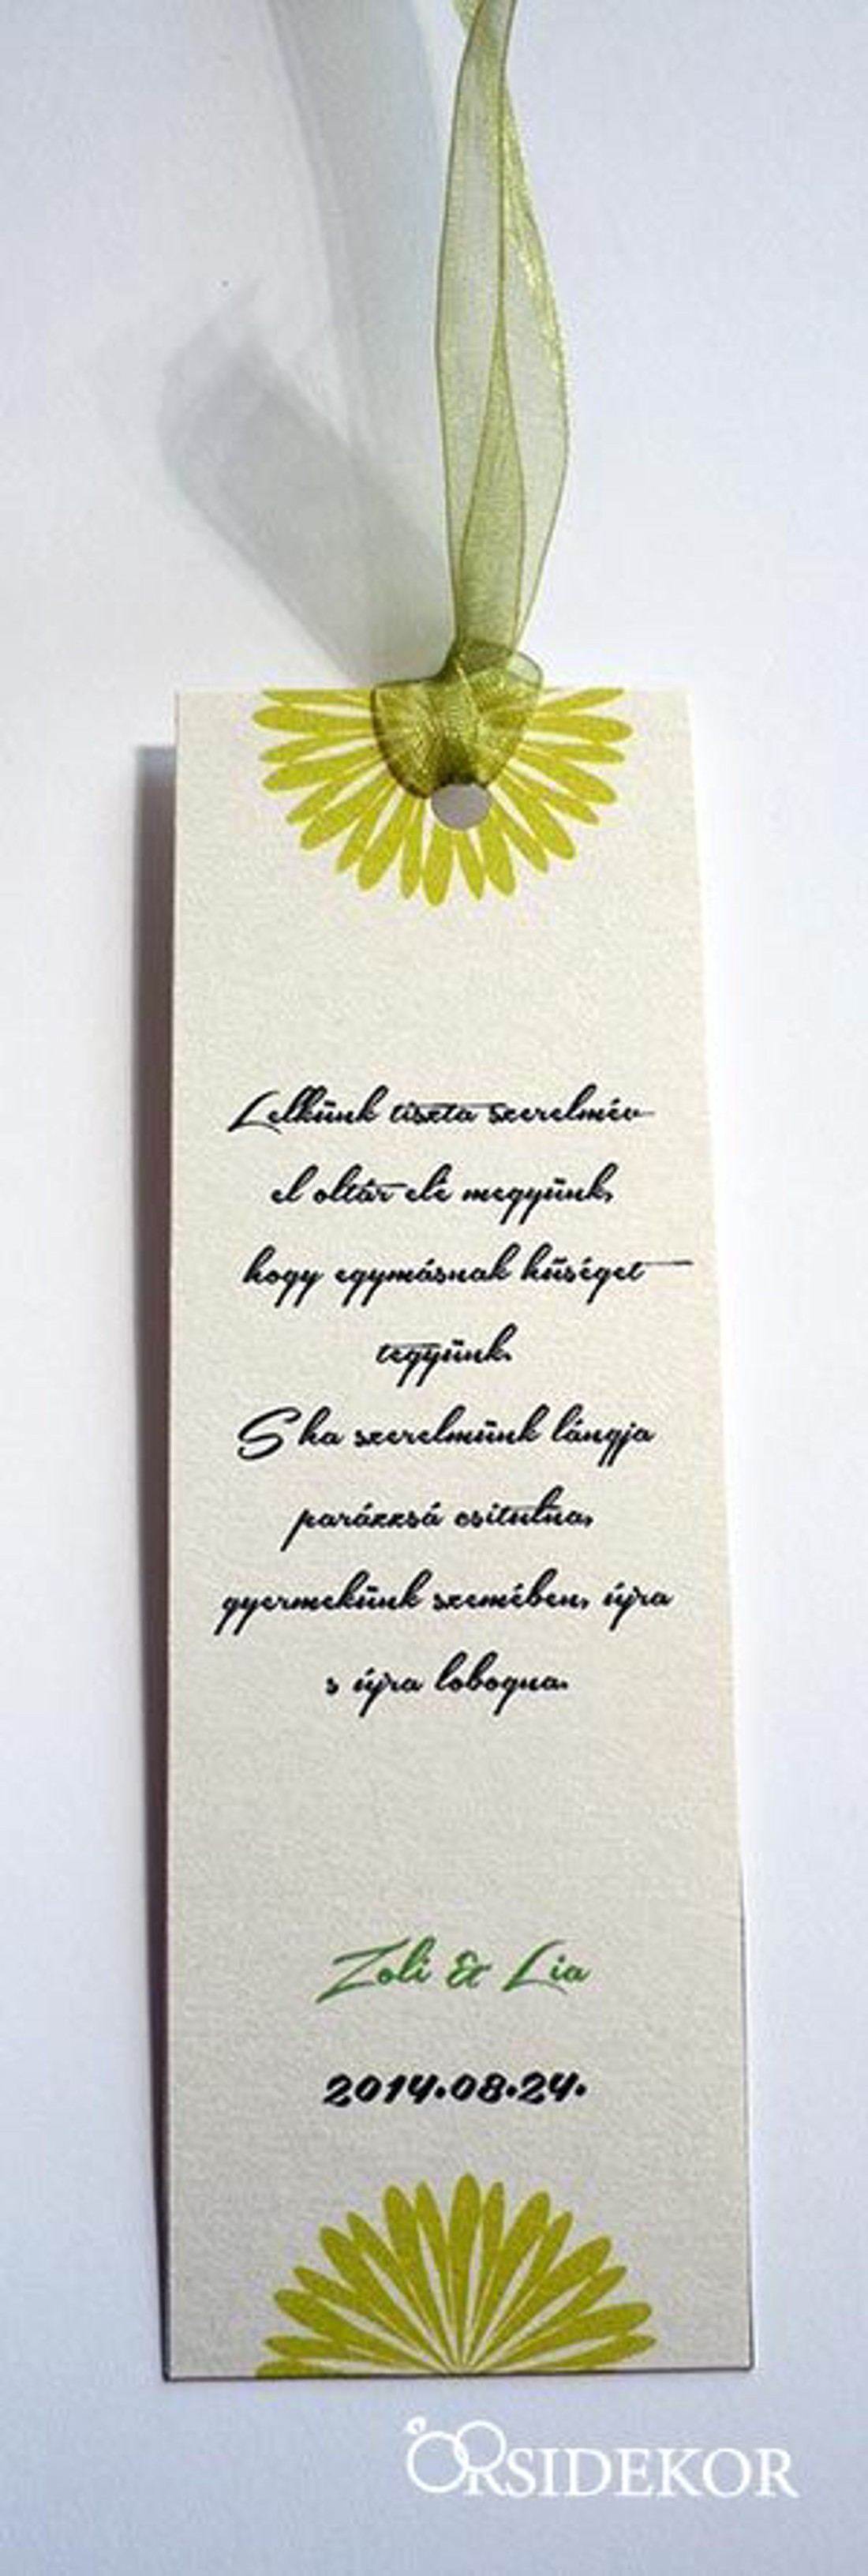 Lelkünk tiszta szerelmév
el oltár elé megyünk,
hogy egymásnak hűséget
tegyünk.
S ha szerelmünk lángja
parázzsá csitulna,
gyermekünk szemében, újra
s újra lobogna.
Zoli & Lia
2014.08.24.
ORSIDEKOR